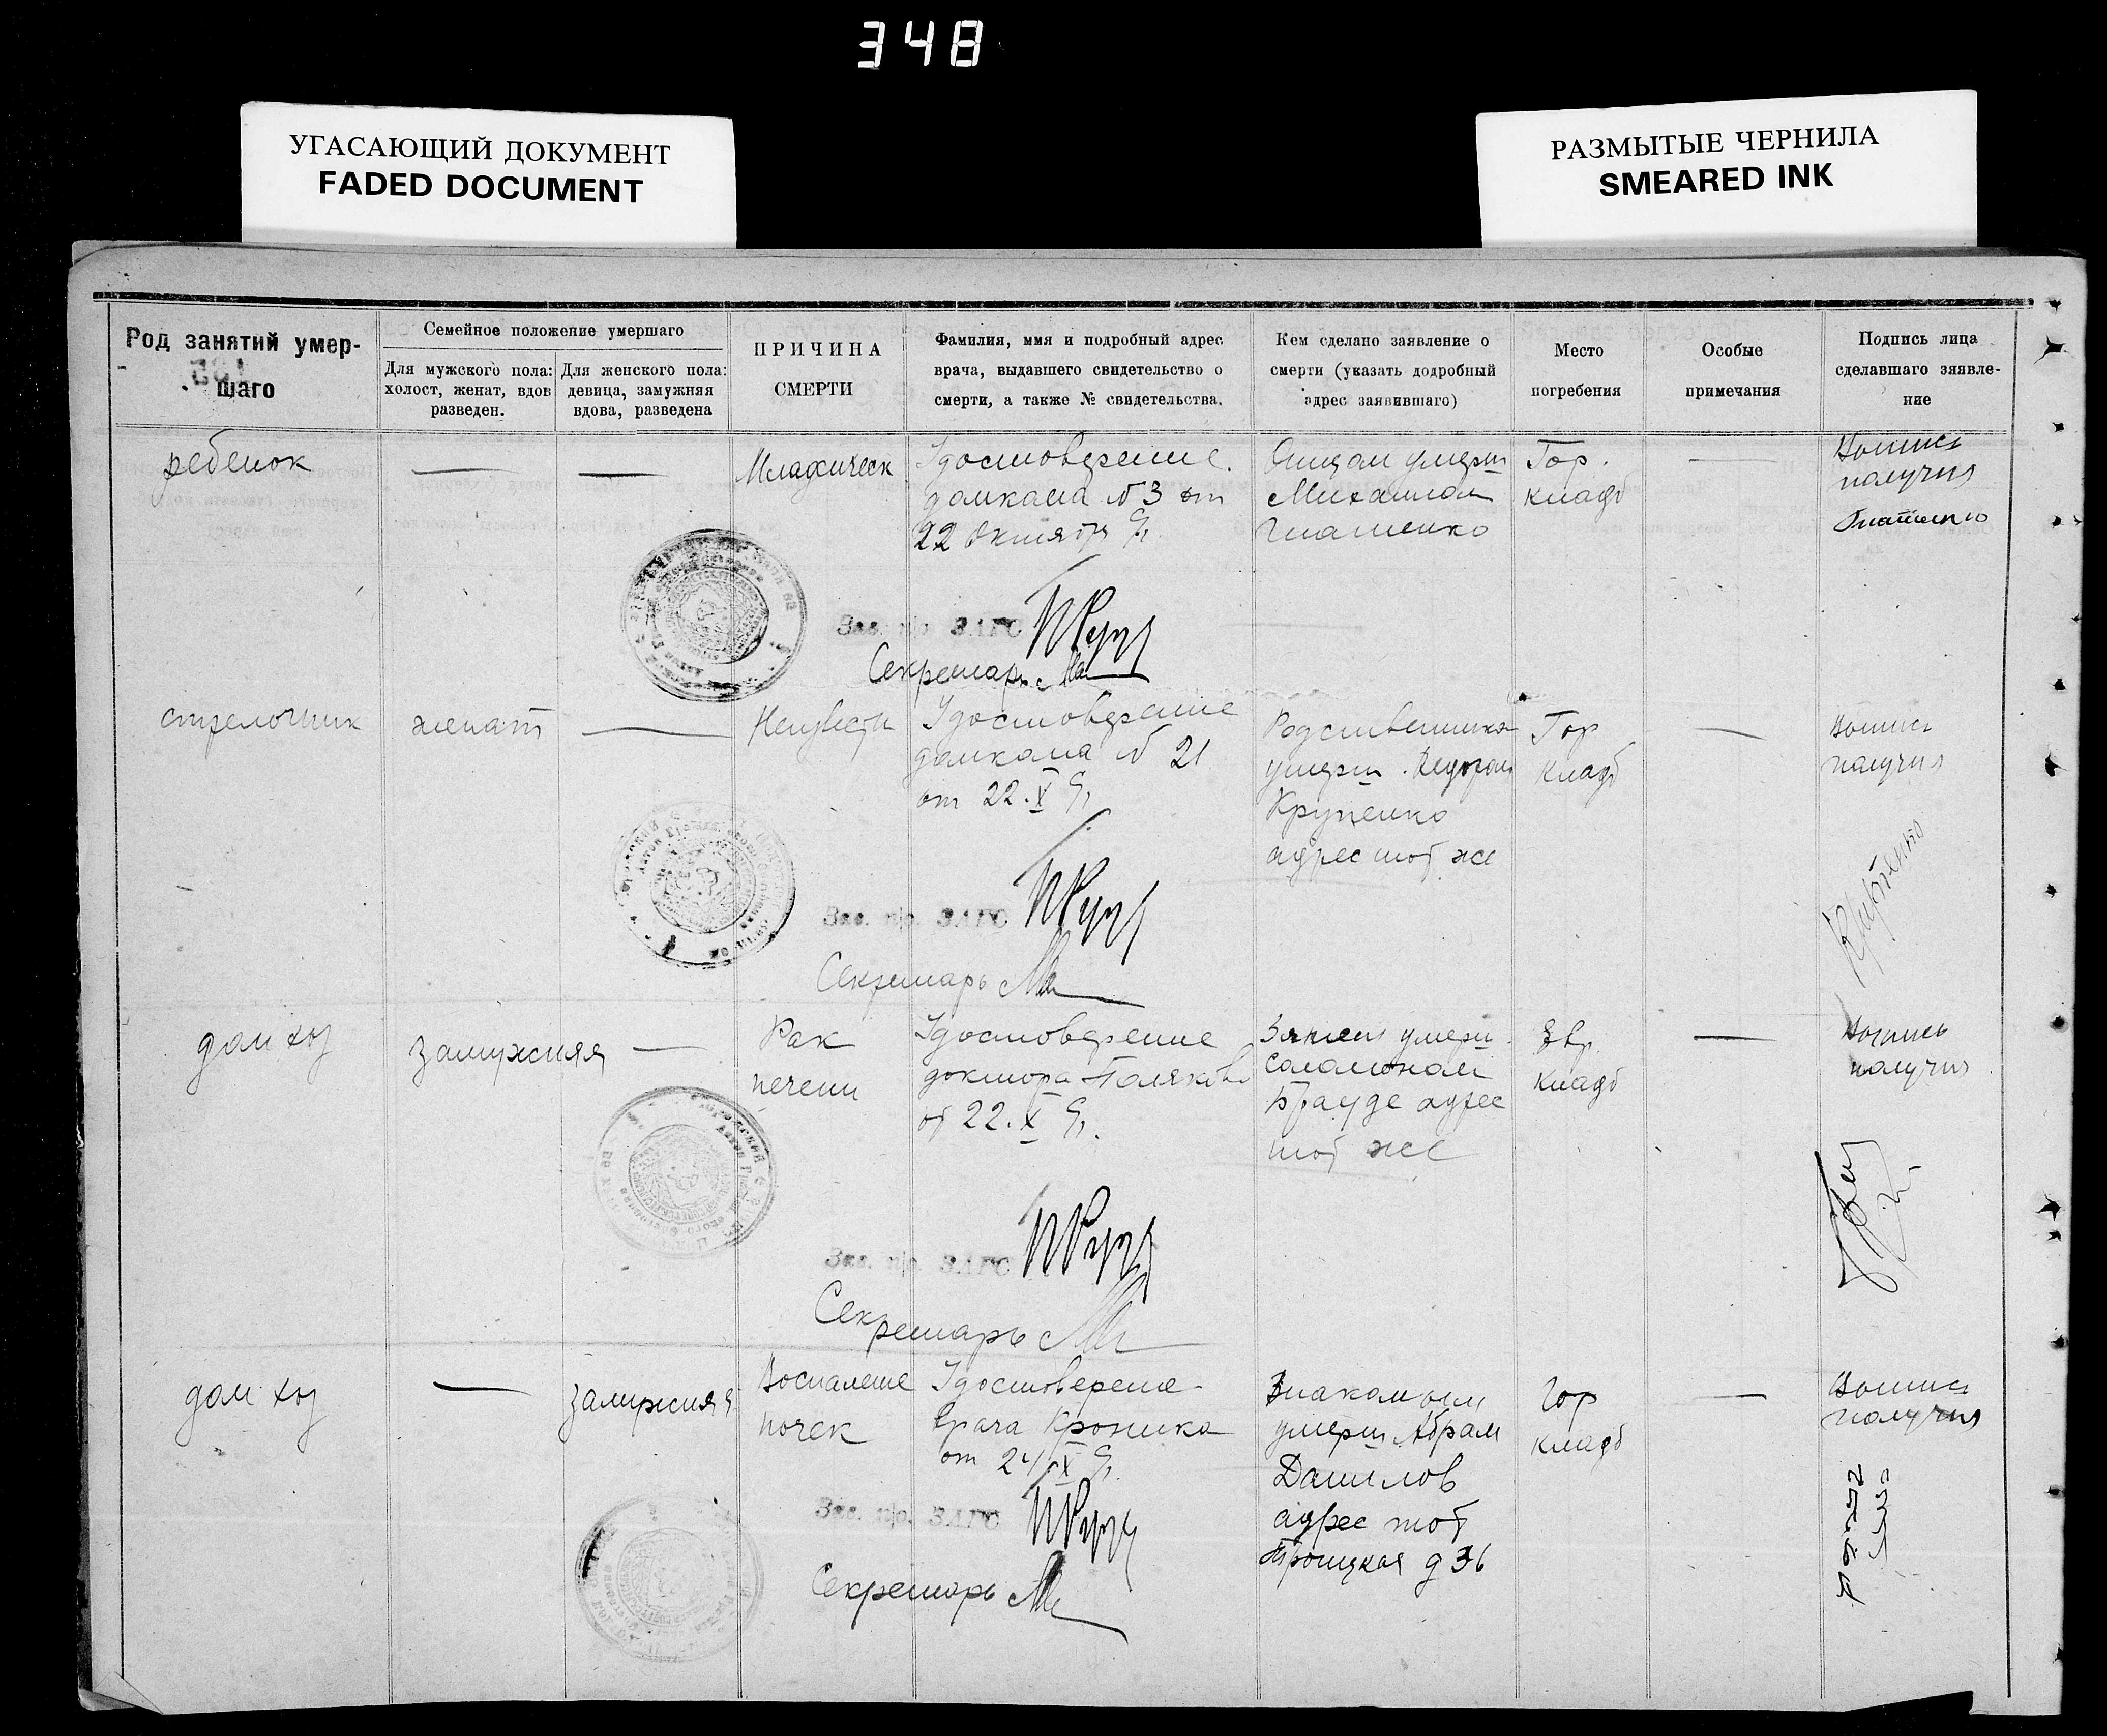 348
УГАСАЮЩИЙ ДОКУМЕНТ
FADED DOCUMENT
РАЗМЫТЫЕ ЧЕРНИЛА
SMEARED INK
Род занятий умер-
шаго
Семейное положение умершаго
Для мужского пола:
холост, женат, вдов
разведен.
Для женского пола:
девица, замужняя
вдова, разведена
ПРИЧИНА
СМЕРТИ
Фамилия, имя и подробный адрес
врача, выдавшего свидетельство о
смерти, а также № свидетельства.
Кем сделано заявление о
смерти (указать додробный
адрес заявившаго)
Место
погребения
Особые
примечания
Подпись лица
сделавшаго зяявле-
ние
ребенок
—
—
Младическ
Удостоверение
домкома № 3 от
22 Октября
Отцом умерш
Михаилом
Гнатенко
Гор.
кладб
—
Выпись
получил
Гнатенко
Зав. п/о ЗАГС
Секретарь
стрелочник
женат
—
Неизвестн
Удостоверение
домкома № 21
от 22.X
Родственника
умерш. Федором
Крупенко
адрес тот же
Гор
кладб
—
Выпись
получил
Зав. п/о ЗАГС
Секретарь
дом хоз
замужняя
—
Рак
печени
Удостоверение
доктора Полякова
от 22.X
Зятем умерш.
Соломоном
Брауде адрес
тот же
Евр.
кладб
—
Выпись
получил
Зав. п/о ЗАГС
Секретарь
дом хоз
—
замужняя
Воспаление
почек
Удостоверение
врача Кроника
от 24/X
Знакомым
умерш Абрам
Данилов
адрес тот
Троицкая д 36
Гор
кладб
—
Выпись
получил
Зав. п/о. ЗАГС
Секретарь